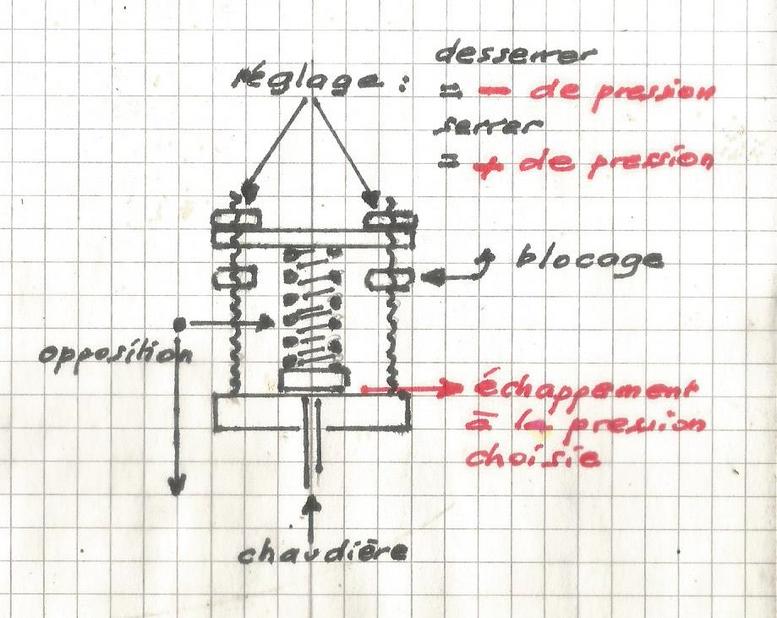 desserrer
réglage : = - de pression
serrer
= + de pression
blocage
opposition
échappement
à la pression
choisie
chaudière